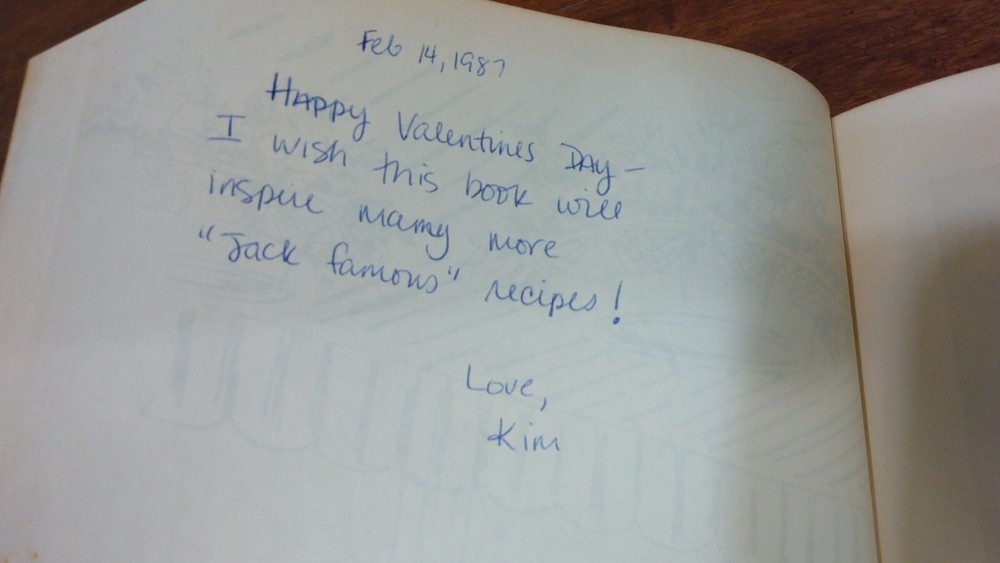 Feb 14, 1987
Happy Valentines Day —
I wish this book will
inspire many more
"Jack famous" recipes!
Love,
Kim